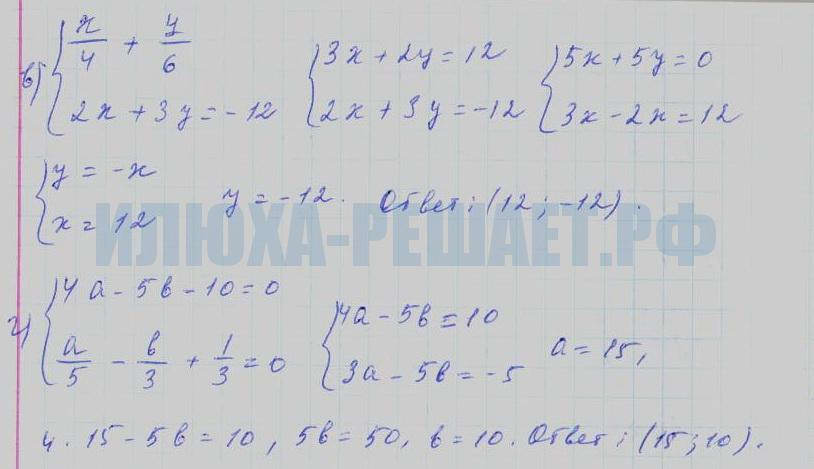 в) { x/4 + y/6      { 3x + 2y = 12      { 5x + 5y = 0
2x + 3y = -12      2x + 3y = -12      3x - 2x = 12
{ y = -x
x = 12      y = -12. Ответ: (12; -12).
ИЛЮХА-РЕШАЕТ.РФ
г) { 4a - 5b - 10 = 0      { 4a - 5b = 10
a/5 - b/3 + 1/3 = 0      3a - 5b = -5      a = 15,
4 · 15 - 5b = 10, 5b = 50, b = 10. Ответ: (15; 10).